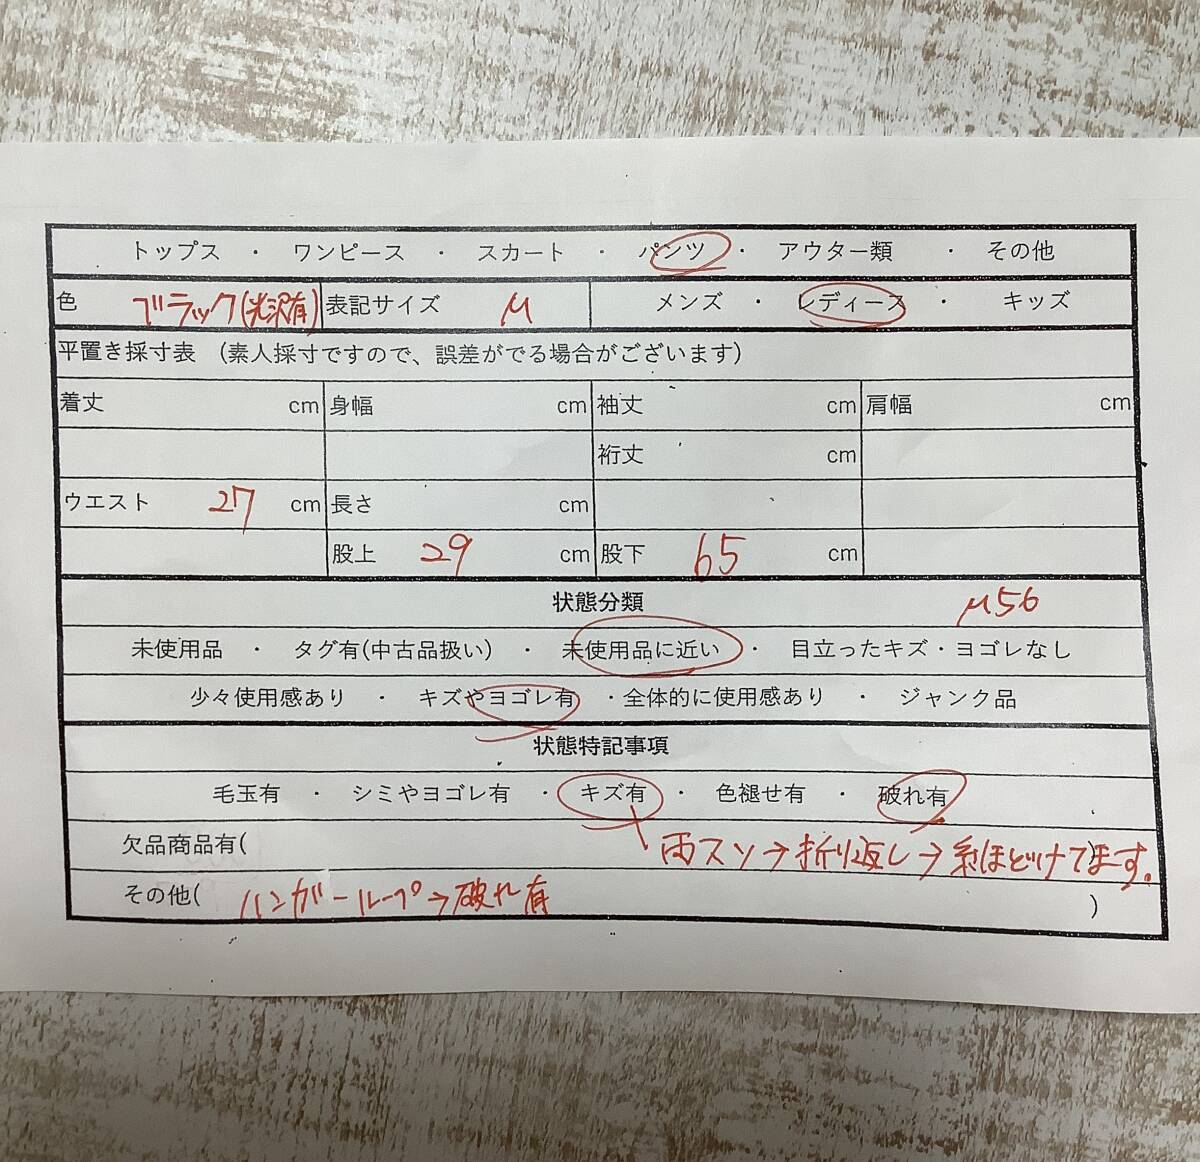 トップス ・ ワンピース ・ スカート ・ パンツ ・ アウター類 ・ その他
色 ブラック(光沢有) 表記サイズ M メンズ ・ レディース ・ キッズ
平置き採寸表 (素人採寸ですので、誤差がでる場合がございます)
着丈 cm 身幅 cm 袖丈 cm 肩幅 cm
裄丈 cm
ウエスト 27 cm 長さ cm
股上 29 cm 股下 65 cm
状態分類 M56
未使用品 ・ タグ有(中古品扱い) ・ 未使用品に近い ・ 目立ったキズ・ヨゴレなし
少々使用感あり ・ キズやヨゴレ有 ・全体的に使用感あり ・ ジャンク品
状態特記事項
毛玉有 ・ シミやヨゴレ有 ・ キズ有 ・ 色褪せ有 ・ 破れ有
欠品商品有( 両スソ→折り返し→糸ほどけてます。)
その他( ハンガーループ→破れ有 )